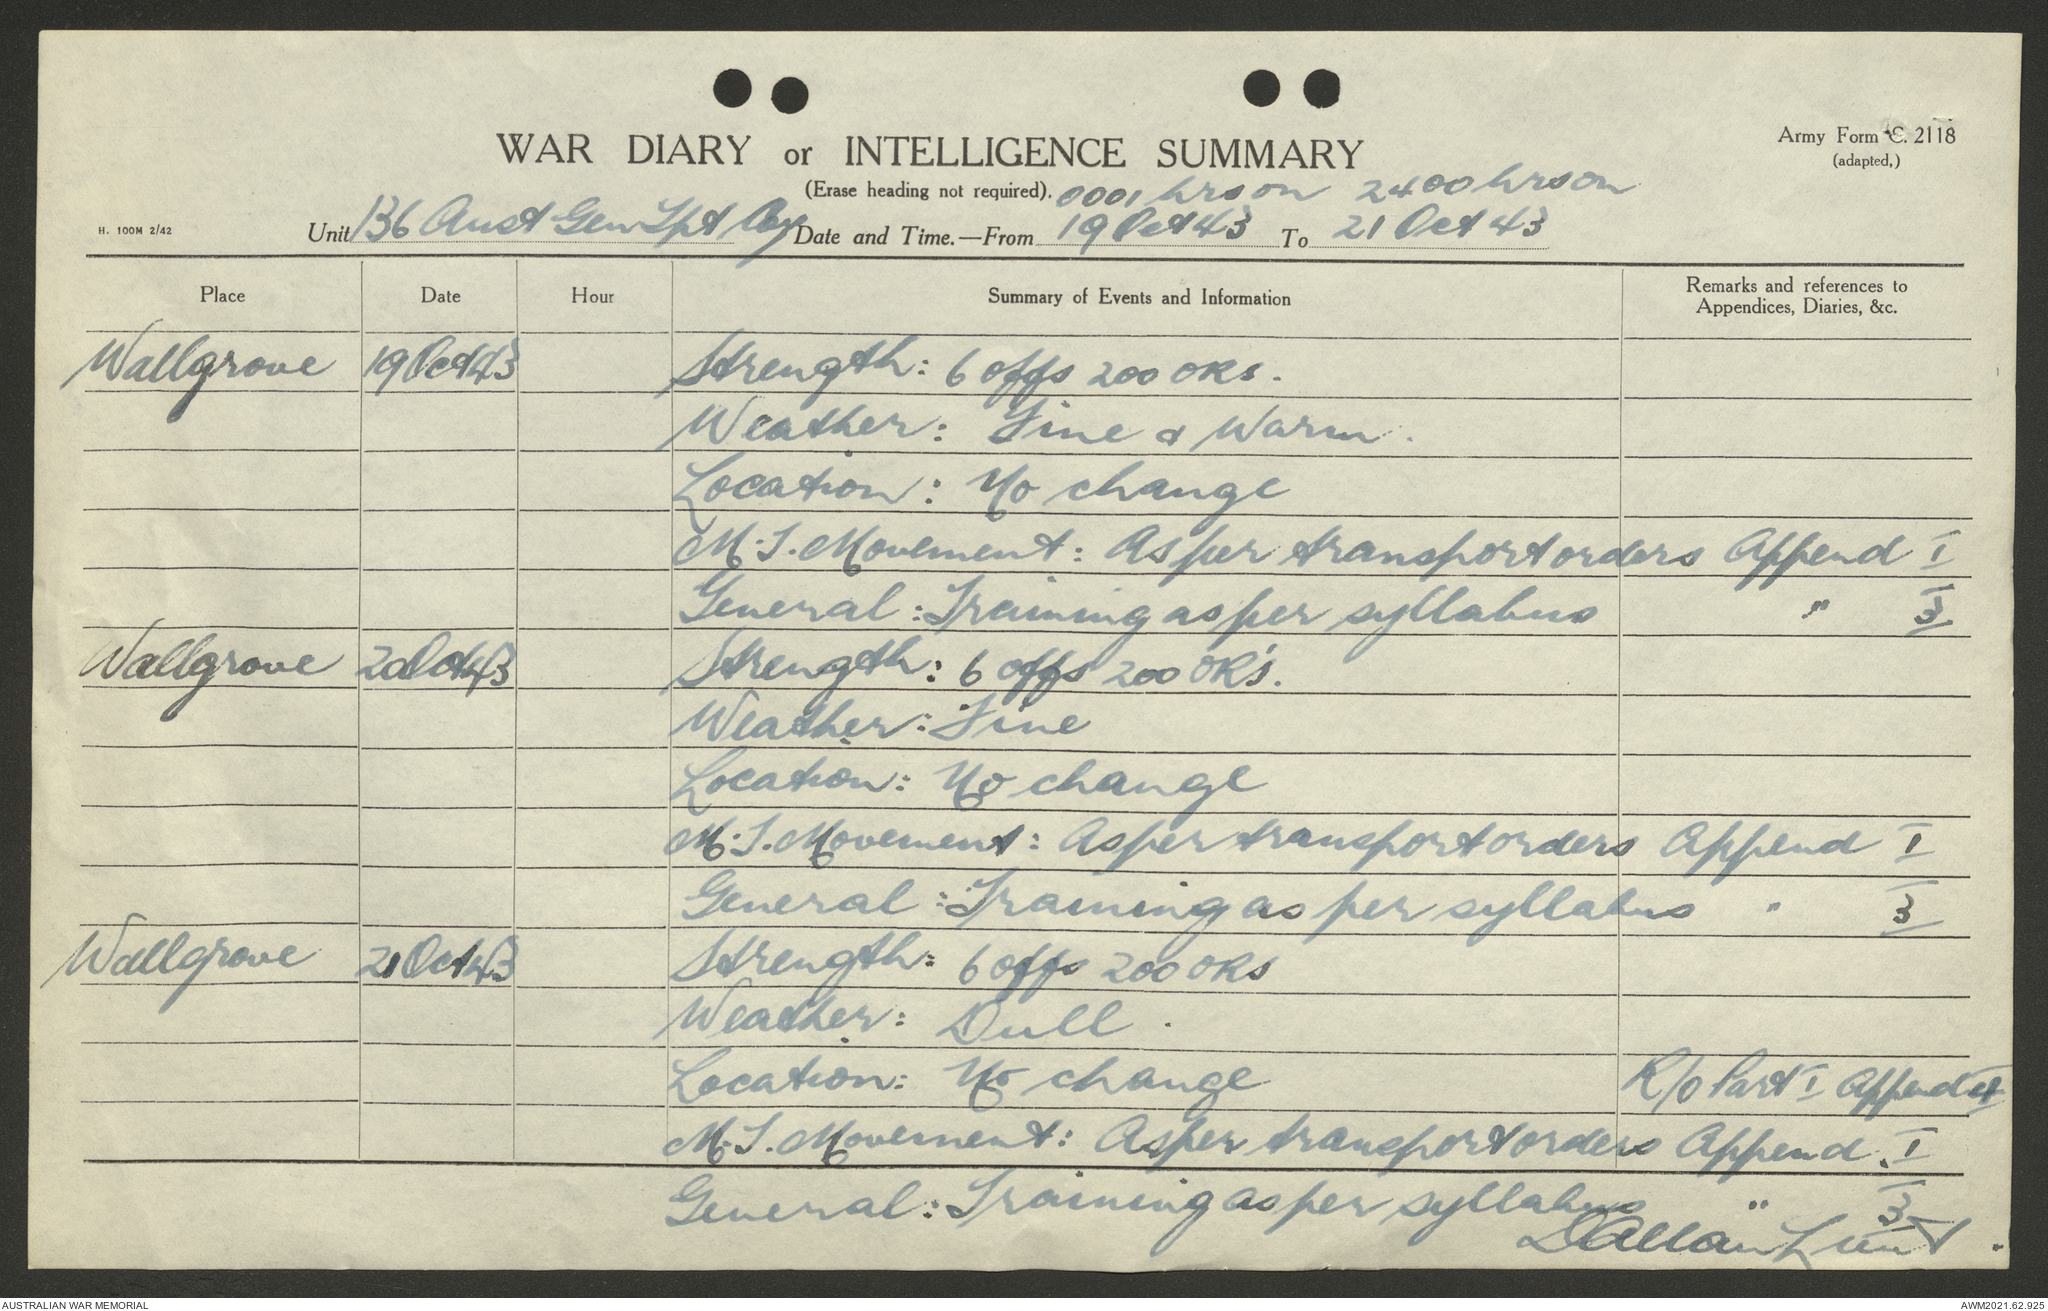 WAR DIARY or INTELLIGENCE SUMMARY
Army Form C. 2118
(adapted,)
(Erase heading not required).
0001 hrs on 2400 hrs on
H. 100M 2/42
Unit 136 Aust Gen Tpt Coy Date and Time.—From 19 Oct 43 To 21 Oct 43
Place Date Hour Summary of Events and Information Remarks and references to
Appendices, Diaries, &c.
Wallgrove 19 Oct 43 Strength: 6 offs 200 ORs.
Weather: Fine & Warm.
Location: No change
M.T. Movement: As per transport orders Append I
General: Training as per syllabus " 3
Wallgrove 20 Oct 43 Strength: 6 offs 200 OR's.
Weather: Fine
Location: No change
M.T. Movement: As per transport orders Append I
General: Training as per syllabus " 3
Wallgrove 21 Oct 43 Strength: 6 offs 200 ORs
Weather: Dull.
Location: No change R/O Part I Append
M.T. Movement: As per transport orders Append. I
General: Training as per syllabus " 3
AUSTRALIAN WAR MEMORIAL
AWM2021.62.925